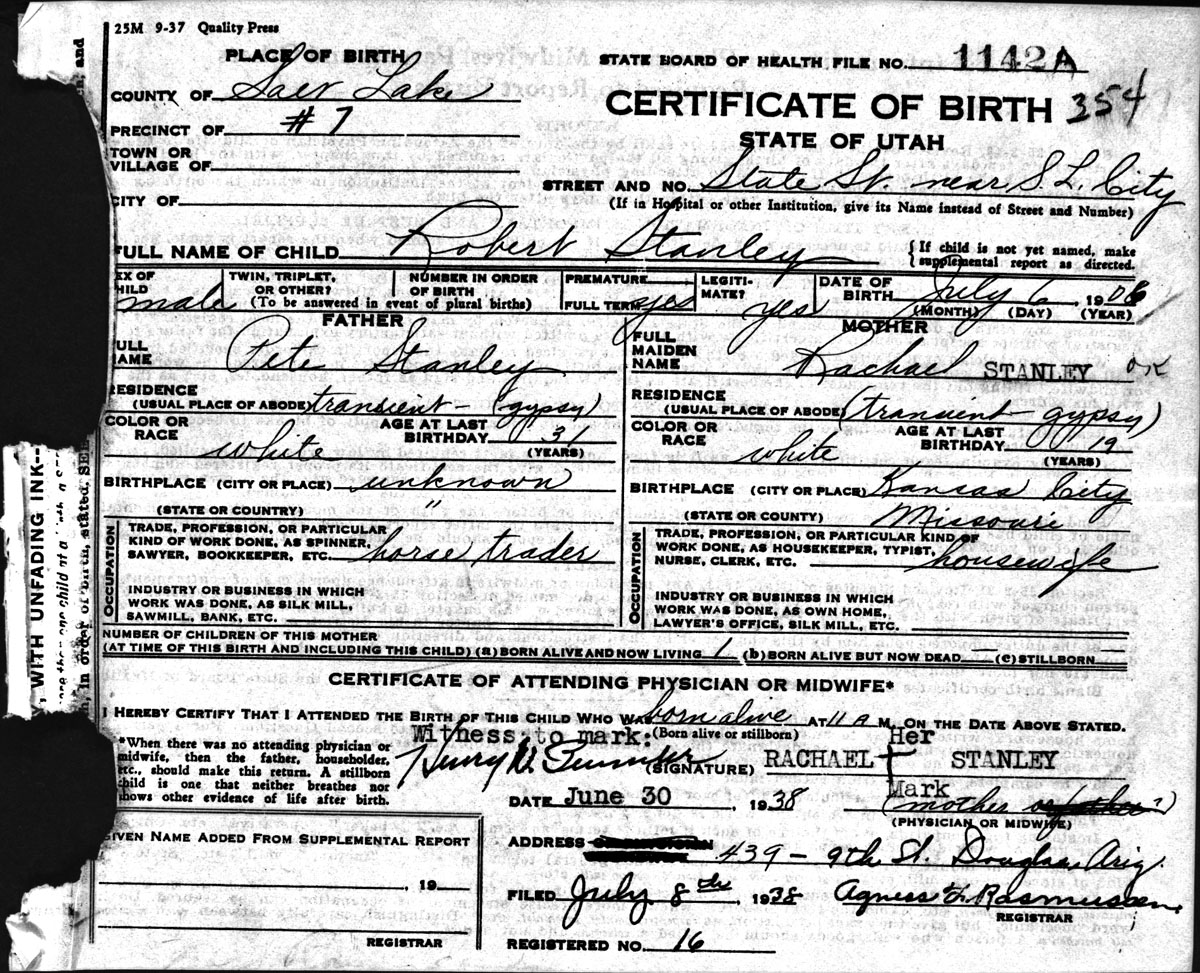 25M 9-37 Quality Press
PLACE OF BIRTH
STATE BOARD OF HEALTH FILE NO. 1142A
COUNTY OF Salt Lake
CERTIFICATE OF BIRTH 354
PRECINCT OF #7
STATE OF UTAH
TOWN OR
VILLAGE OF
STREET AND NO. State St. near S. L. City
CITY OF
(If in Hospital or other Institution, give its Name instead of Street and Number)
FULL NAME OF CHILD Robert Stanley
{If child is not yet named, make
supplemental report as directed.
EX OF
HILD male
TWIN, TRIPLET,
OR OTHER?
(To be answered in event of plural births)
NUMBER IN ORDER
OF BIRTH
PREMATURE
FULL TERM yes
LEGITI-
MATE? yes
DATE OF
BIRTH July 6, 1908
(MONTH) (DAY) (YEAR)
FATHER
ULL
NAME Pete Stanley
RESIDENCE
(USUAL PLACE OF ABODE) transient - (gypsy)
COLOR OR
RACE white
AGE AT LAST
BIRTHDAY 31
(YEARS)
BIRTHPLACE (CITY OR PLACE) unknown
(STATE OR COUNTRY) "
OCCUPATION
TRADE, PROFESSION, OR PARTICULAR
KIND OF WORK DONE, AS SPINNER,
SAWYER, BOOKKEEPER, ETC. horse trader
INDUSTRY OR BUSINESS IN WHICH
WORK WAS DONE, AS SILK MILL,
SAWMILL, BANK, ETC.
MOTHER
FULL
MAIDEN
NAME Rachael STANLEY OK
RESIDENCE
(USUAL PLACE OF ABODE) (transient - gypsy)
COLOR OR
RACE white
AGE AT LAST
BIRTHDAY 19
(YEARS)
BIRTHPLACE (CITY OR PLACE) Kansas City
(STATE OR COUNTY) Missouri
OCCUPATION
TRADE, PROFESSION, OR PARTICULAR KIND OF
WORK DONE, AS HOUSEKEEPER, TYPIST,
NURSE, CLERK, ETC. housewife
INDUSTRY OR BUSINESS IN WHICH
WORK WAS DONE, AS OWN HOME,
LAWYER'S OFFICE, SILK MILL, ETC.
NUMBER OF CHILDREN OF THIS MOTHER
(AT TIME OF THIS BIRTH AND INCLUDING THIS CHILD) (a) BORN ALIVE AND NOW LIVING 1 (b) BORN ALIVE BUT NOW DEAD (c) STILLBORN
CERTIFICATE OF ATTENDING PHYSICIAN OR MIDWIFE*
I HEREBY CERTIFY THAT I ATTENDED THE BIRTH OF THIS CHILD WHO WAS born alive AT 11 A M. ON THE DATE ABOVE STATED.
(Born alive or stillborn)
*When there was no attending physician or
midwife, then the father, householder,
etc., should make this return. A stillborn
child is one that neither breathes nor
shows other evidence of life after birth.
Witness to mark:
Henry W.
(SIGNATURE) RACHAEL Her † Mark STANLEY
DATE June 30, 1938
(mother or father?)
(PHYSICIAN OR MIDWIFE)
GIVEN NAME ADDED FROM SUPPLEMENTAL REPORT
, 19
REGISTRAR
ADDRESS 439 - 9th St. Douglas Ariz.
FILED July 8th, 1938 Agness H. Rasmussen
REGISTRAR
REGISTERED NO. 16
WITH UNFADING INK--
in order of birth, stated. SEE
and